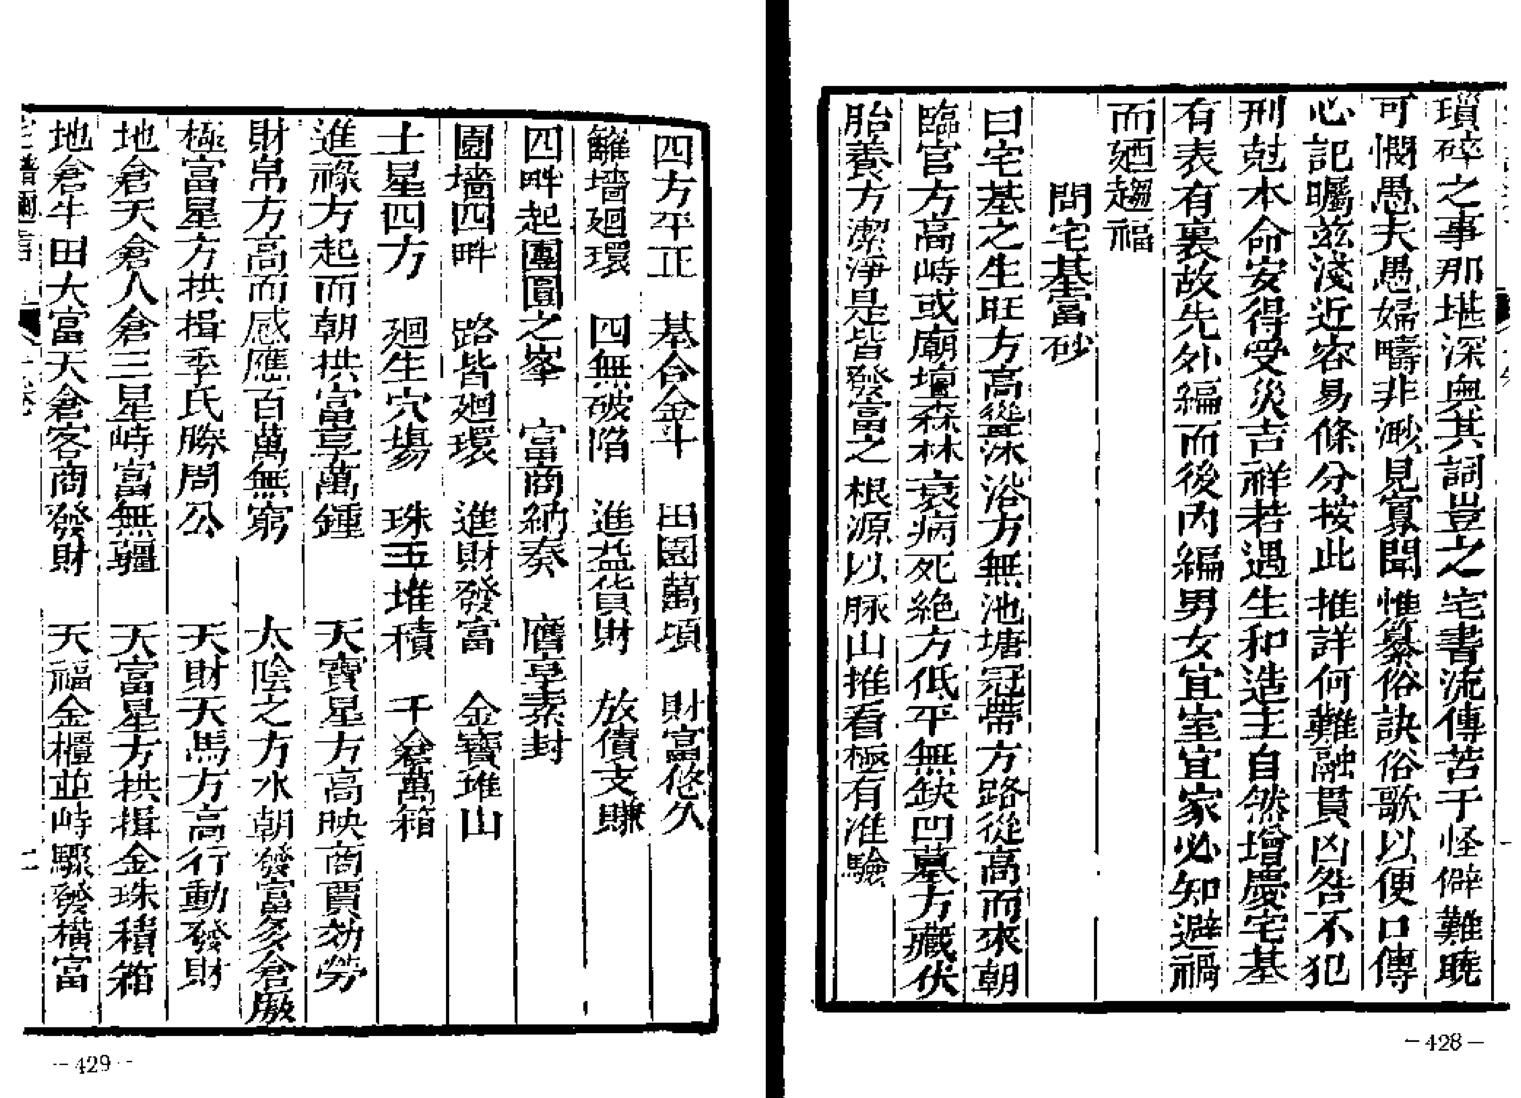 瑣碎之事那堪深奥其詞豈之宅書流傳苦于怪僻難曉
可憫愚夫愚婦疇非渺見寡聞惟纂俗訣俗歌以便口傳
心記矚兹淺近容易條分按此推詳何難融貫凶咎不犯
刑尅本命安得受災吉祥若遇生和造主自然增慶宅基
有表有裏故先外編而後内編男女宜室宜家必知避禍
而廼趨福
問宅基富砂
曰宅基之生旺方高聳沐浴方無池塘冠帶方路從高而來朝
臨官方高峙或廟壇森林衰病死絶方低平無缺凹墓方藏伏
胎養方潔淨是皆發富之根源以脉山推看極有准驗
—428—
四方平正 基合金斗 田園萬頃 財富悠久
籬墻廻環 四無破陷 進益貨財 放債支賺
四畔起團圓之峯 富商納奏 膺享素封
園墻四畔 路皆廻環 進財發富 金寶堆山
土星四方 廻生穴場 珠玉堆積 千倉萬箱
進祿方起而朝拱富享萬鍾 天寶星方高映商賈効勞
財帛方高而感應百萬無窮 太陰之方水朝發富多倉廒
極富星方拱揖季氏勝周公 天財天馬方高行動發財
地倉天倉人倉三星峙富無疆 天富星方拱揖金珠積箱
地倉牛田大富天倉客商發財 天福金櫃並峙驟發橫富
—429—